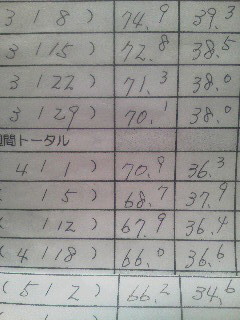 3 / 8 ) 74.9 39.3
3 / 15 ) 72.8 38.5
3 / 22 ) 71.3 38.0
3 / 29 ) 70.1 38.0
間トータル
4 / 1 ) 70.9 36.3
( / 5 ) 68.7 37.9
( / 12 ) 67.9 36.4
( 4 / 18 ) 66.0 36.6
( 5 / 2 ) 66.2 34.6